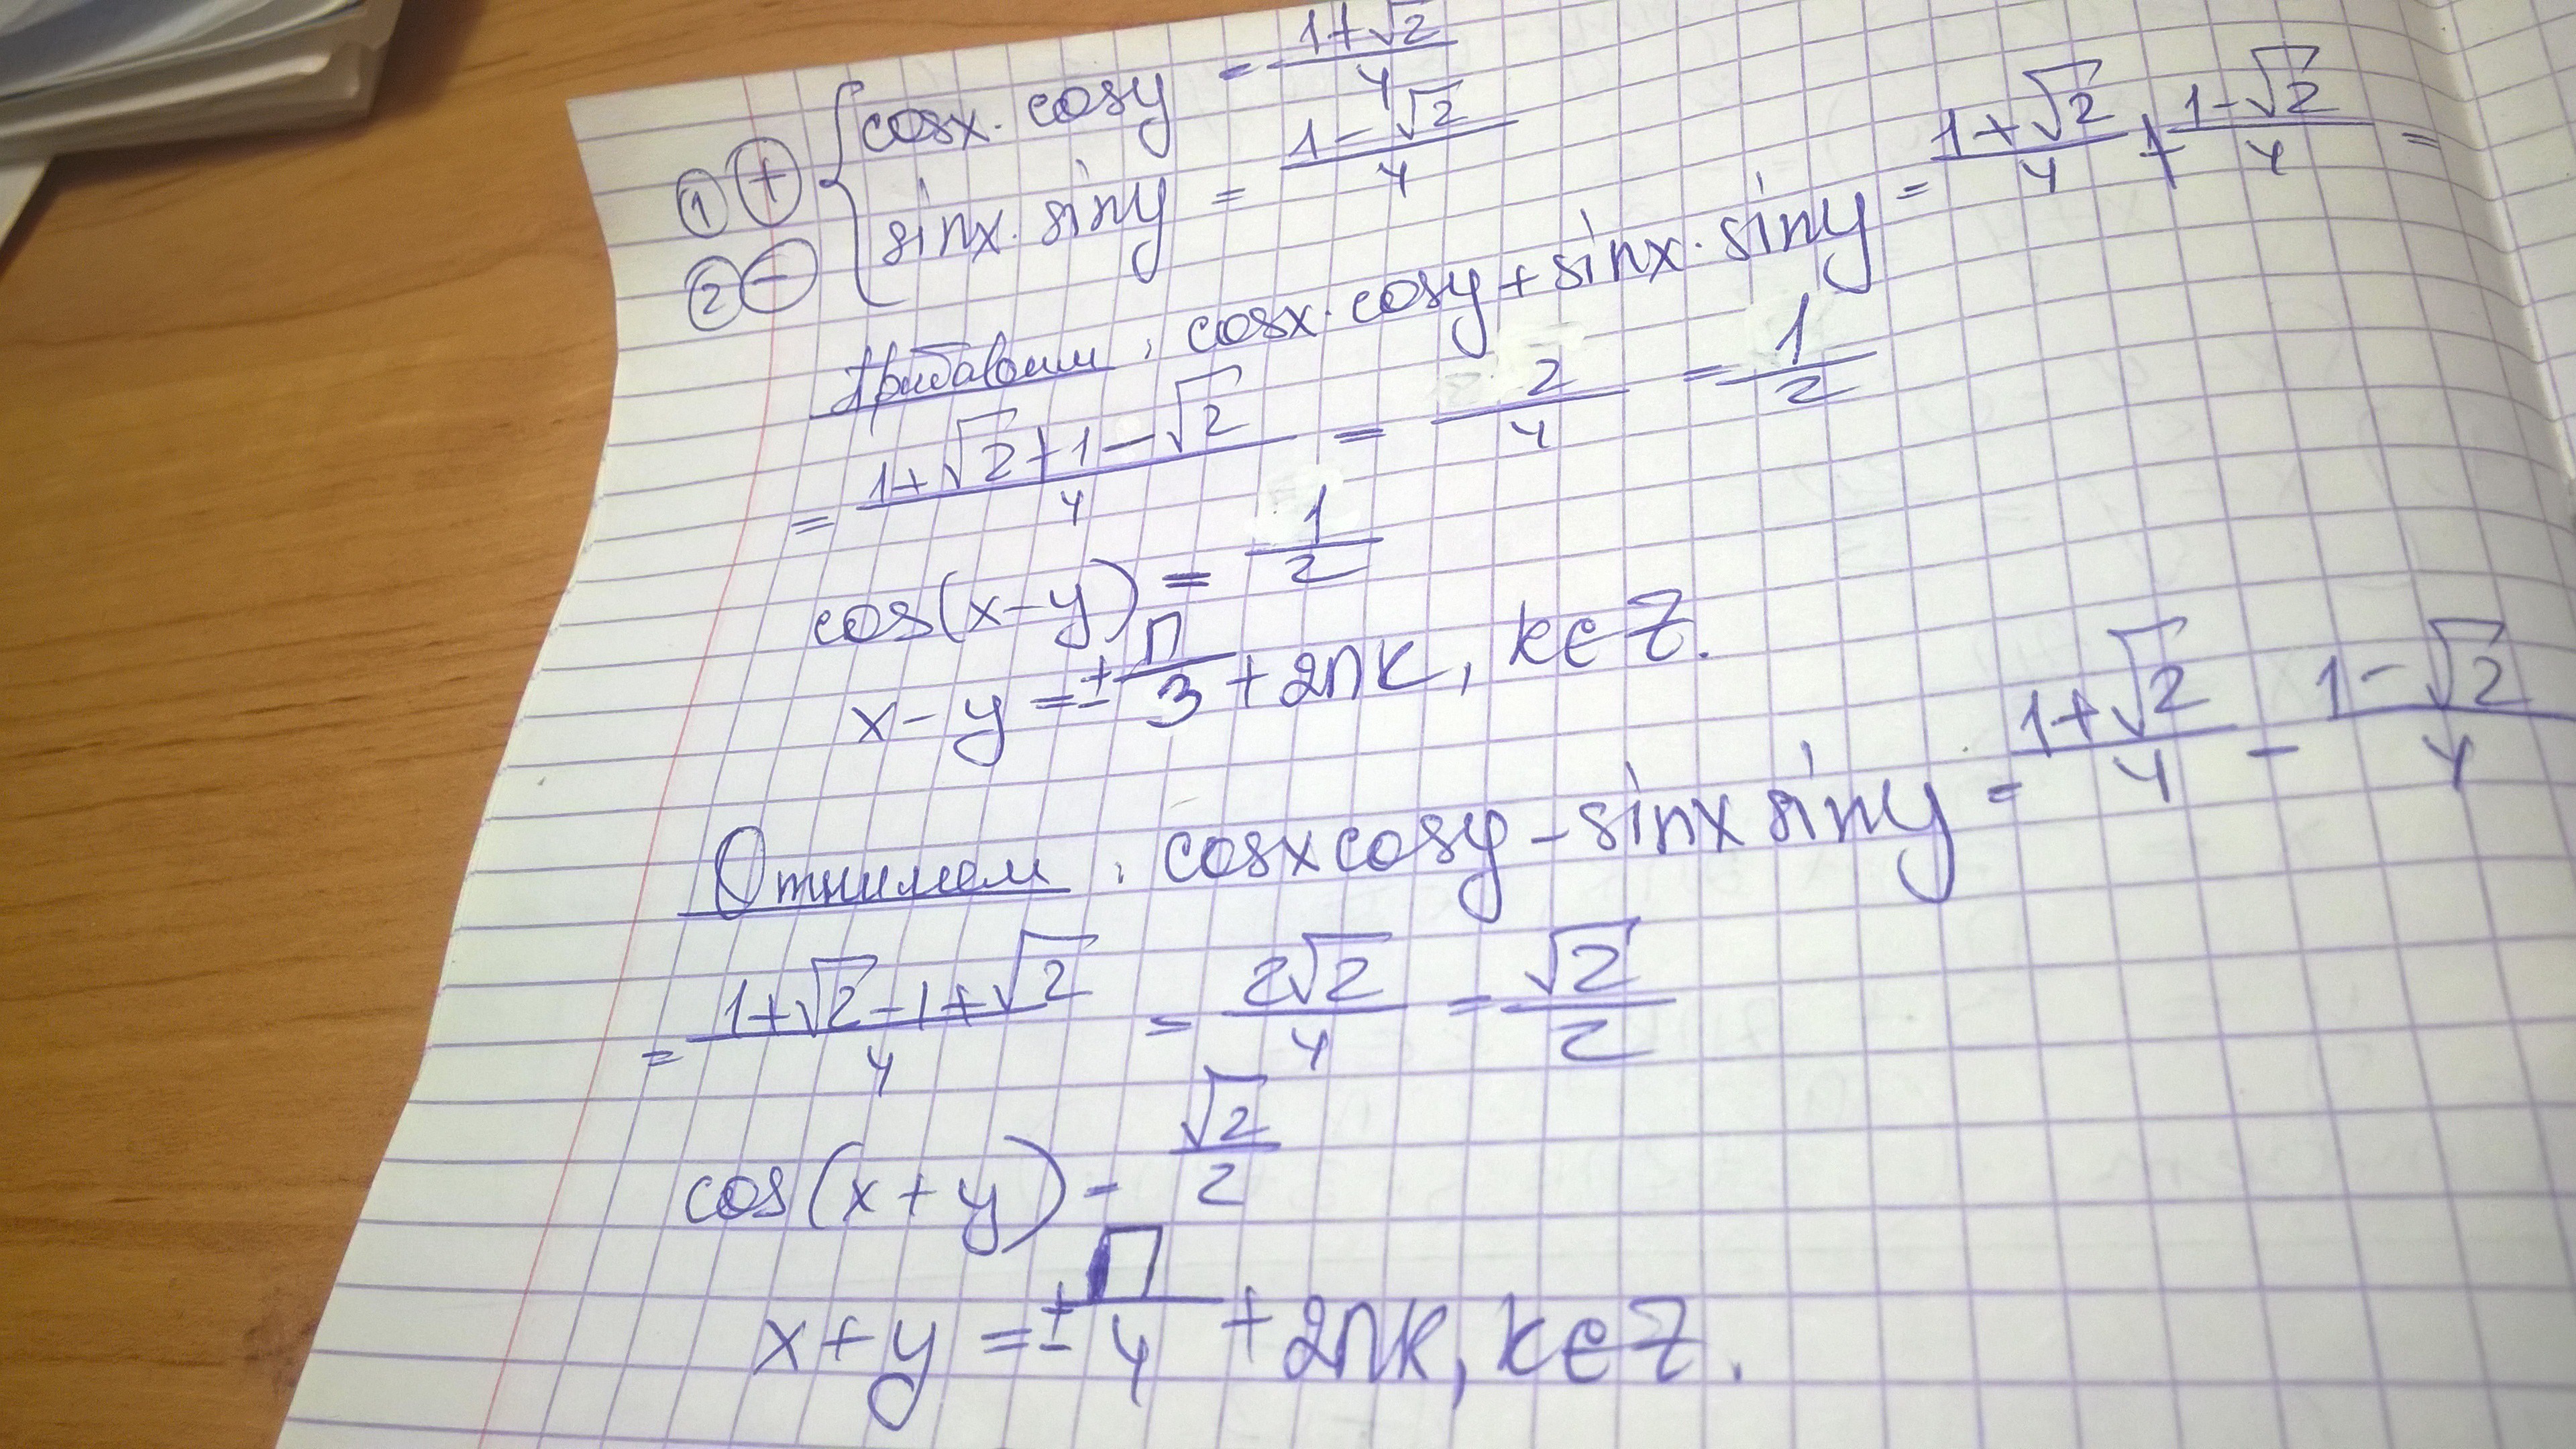 ① ⊕ { cosx · cosy = (1+√2)/4
② ⊖ { sinx · siny = (1-√2)/4
Прибавим: cosx · cosy + sinx · siny = (1+√2)/4 + (1-√2)/4 =
= (1+√2+1-√2)/4 = 2/4 = 1/2
cos(x-y) = 1/2
x-y = ± П/3 + 2пк, к∈Z.
Отнимем: cosx cosy - sinx siny = (1+√2)/4 - (1-√2)/4
= (1+√2-1+√2)/4 = 2√2/4 = √2/2
cos(x+y) = √2/2
x+y = ± П/4 + 2пк, к∈Z.